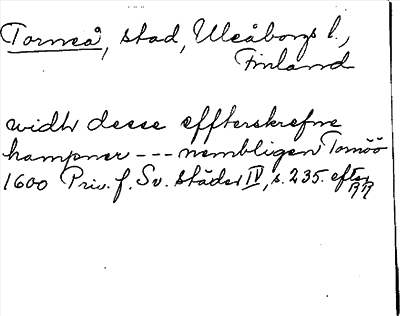 Torneå, stad, Uleåborgs l.,
Finland
widh desse effterskrefne
hampner --- nembligen Tornöö
1600 Priv. f. Sv. städer IV, s. 235. efter
RR